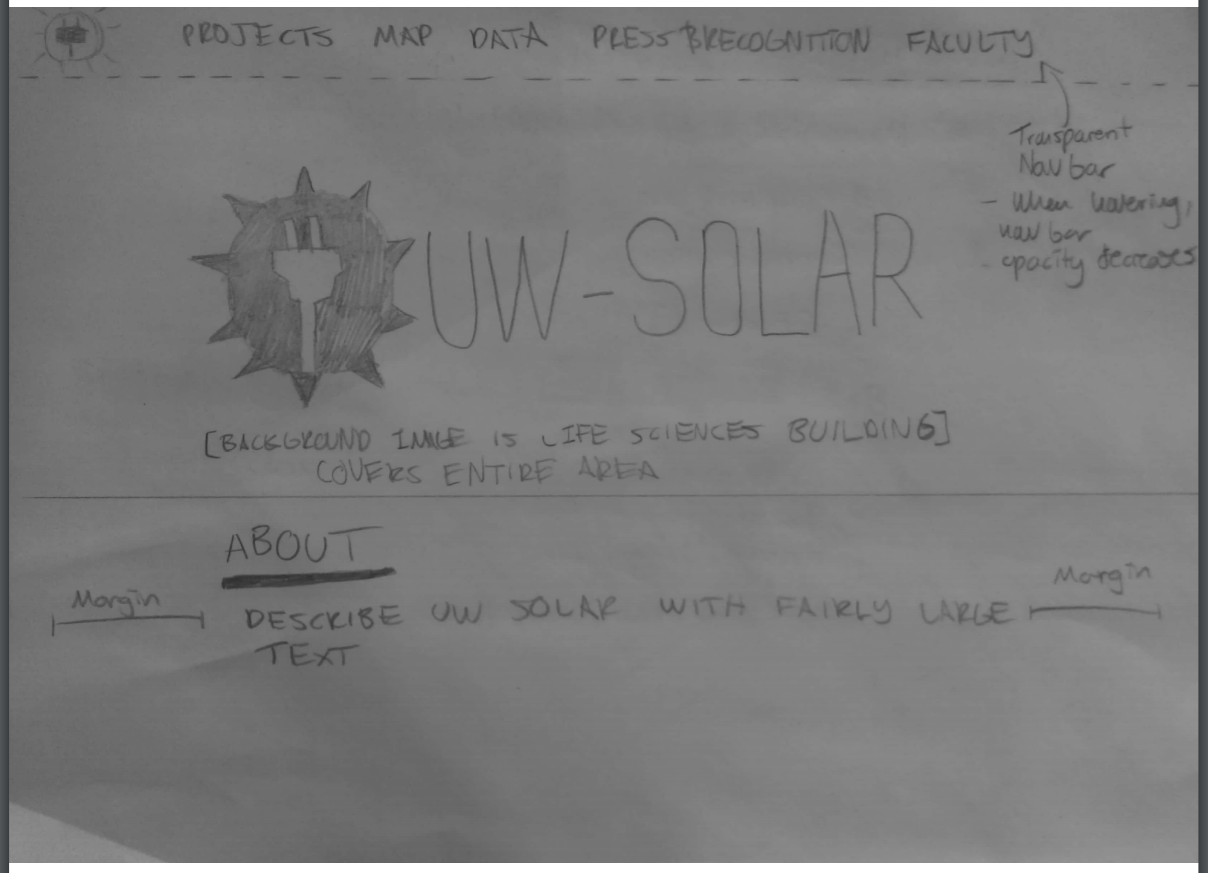 PROJECTS MAP DATA PRESS & RECOGNITION FACULTY
Transparent
Nav bar
- When hovering,
nav bar
- opacity decreases
UW-SOLAR
[BACKGROUND IMAGE IS LIFE SCIENCES BUILDING]
COVERS ENTIRE AREA
ABOUT
Margin
Margin
DESCRIBE UW SOLAR WITH FAIRLY LARGE
TEXT